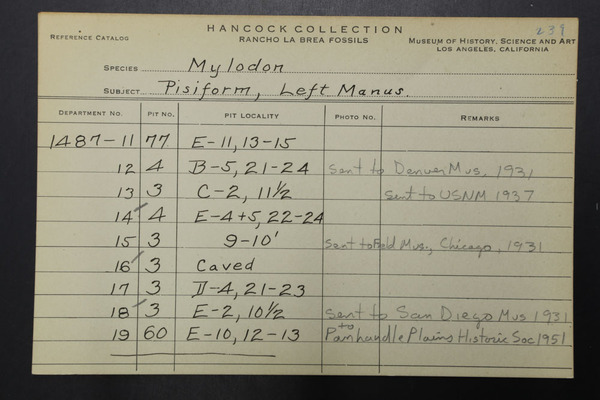 239
HANCOCK COLLECTION
REFERENCE CATALOG RANCHO LA BREA FOSSILS MUSEUM OF HISTORY, SCIENCE AND ART
LOS ANGELES, CALIFORNIA
SPECIES Mylodon
SUBJECT Pisiform, Left Manus.
DEPARTMENT NO. PIT NO. PIT LOCALITY PHOTO NO. REMARKS
1487-11 77 E-11, 13-15
12 4 B-5, 21-24 sent to Denver Mus. 1931
13 3 C-2, 11½ sent to USNM 1937
14 4 E-4+5, 22-24
15 3 9-10' sent to Field Mus., Chicago, 1931
16 3 Caved
17 3 D-4, 21-23
18 3 E-2, 10½ sent to San Diego Mus 1931
19 60 E-10, 12-13 to Panhandle Plains Historic Soc 1951